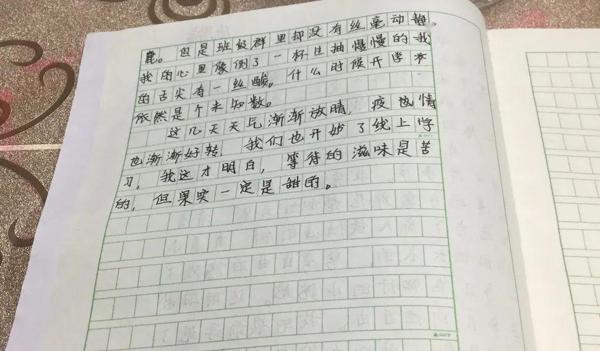 鹿。但是班级群里却没有丝毫动静。
我的心里像倒了一杯柠檬慢慢的我
的舌尖有一丝酸。什么时候开学
依然是个未知数。
这几天天气渐渐放晴，疫也情
也渐渐好转，我们也开始了线上学
习，我这才明白，等待的滋味是苦
的，但果实一定是甜的。